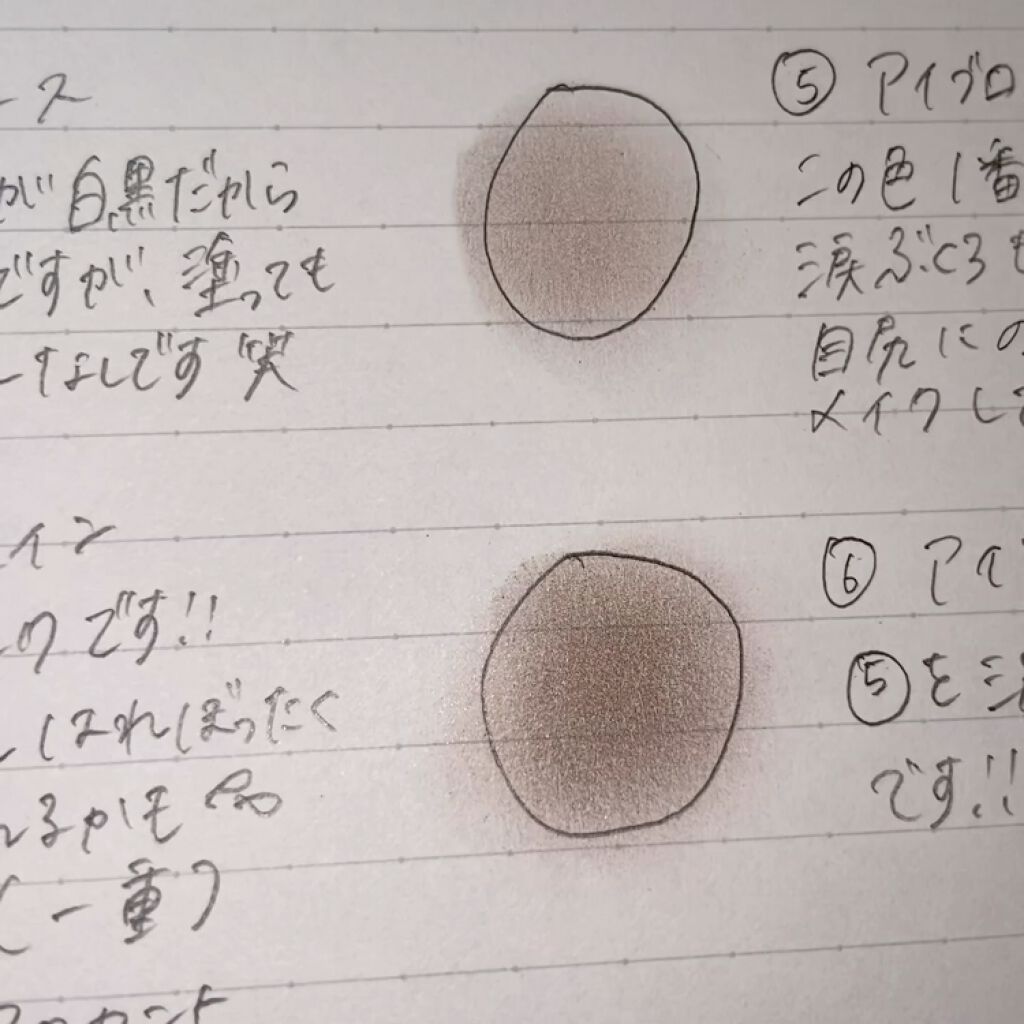 ース
が白黒だから
ですが、塗っても
なしです笑
イン
クです!!
しはれぼったく
るかも
(一重)
⑤ アイブロ
この色1番
涙ぶくろも
目尻にの
メイクして
⑥ アイ
⑤を
です!!